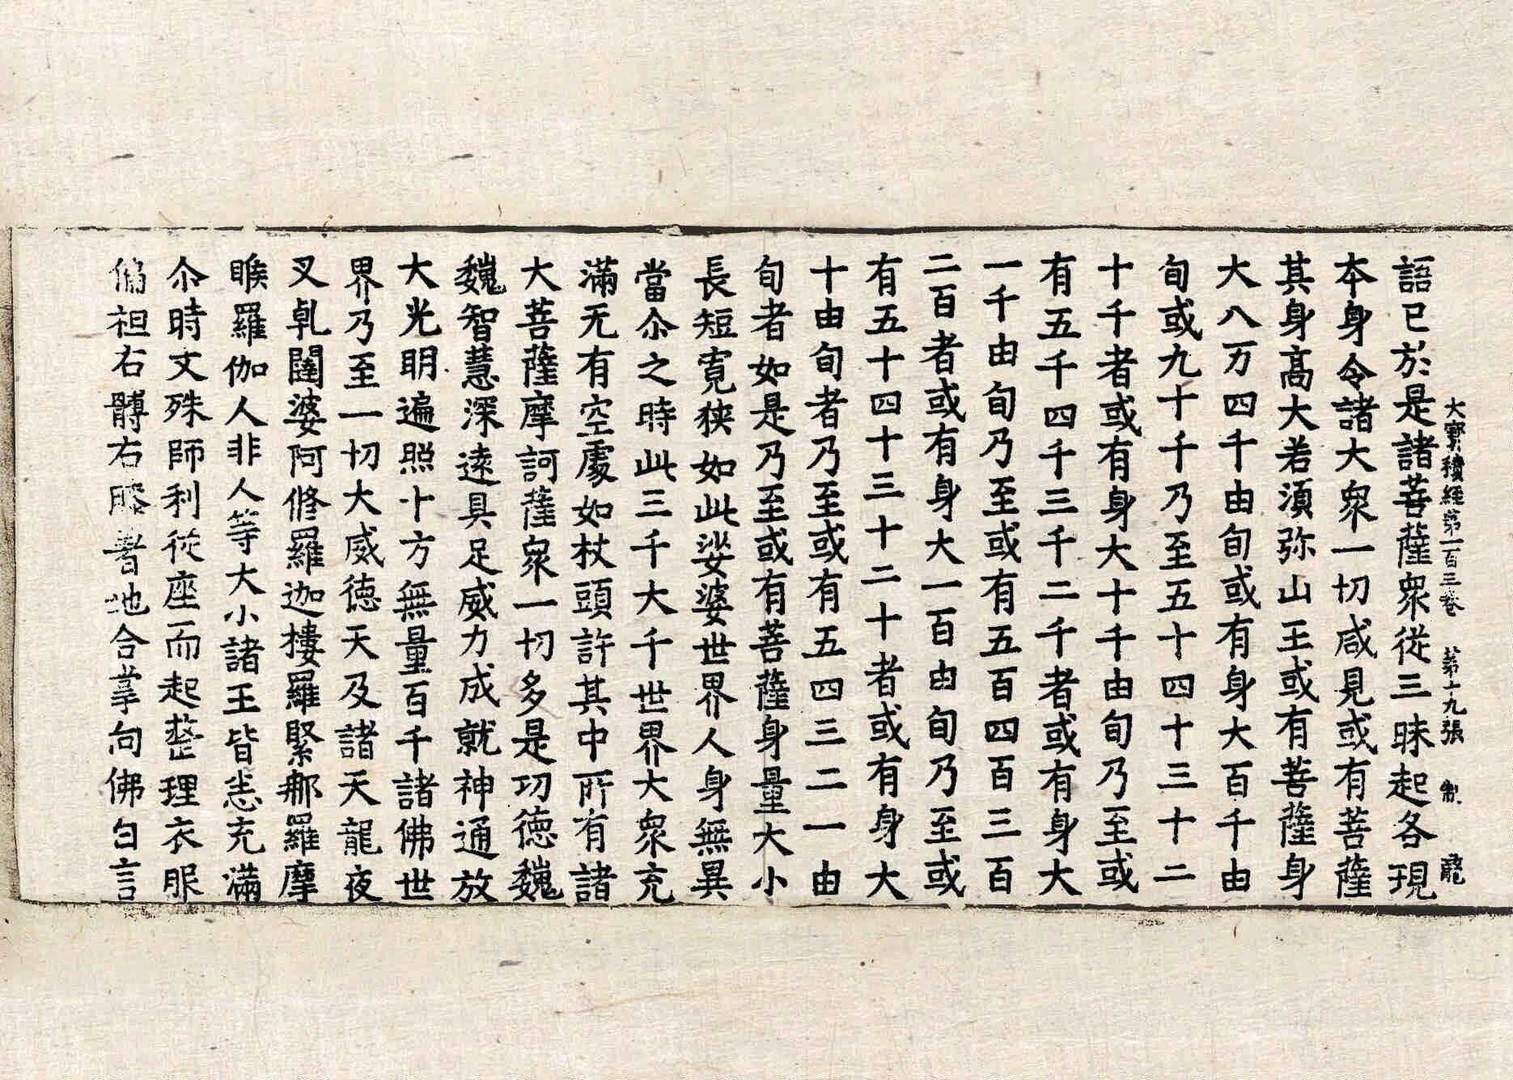 大寶積經第一百三卷　第十九張　制　龍
語已於是諸菩薩衆從三昧起各現
本身令諸大衆一切咸見或有菩薩
其身高大若須弥山王或有菩薩身
大八万四千由旬或有身大百千由
旬或九十千乃至五十四十三十二
十千者或有身大十千由旬乃至或
有五千四千三千二千者或有身大
一千由旬乃至或有五百四百三百
二百者或有身大一百由旬乃至或
有五十四十三十二十者或有身大
十由旬者乃至或有五四三二一由
旬者如是乃至或有菩薩身量大小
長短寬狹如此娑婆世界人身無異
當尒之時此三千大千世界大衆充
滿无有空處如杖頭許其中所有諸
大菩薩摩訶薩衆一切多是功德魏
魏智慧深遠具足威力成就神通放
大光明遍照十方無量百千諸佛世
界乃至一切大威德天及諸天龍夜
叉乹闥婆阿修羅迦樓羅緊那羅摩
睺羅伽人非人等大小諸王皆悉充滿
尒時文殊師利從座而起整理衣服
偏袒右髆右膝著地合掌向佛白言